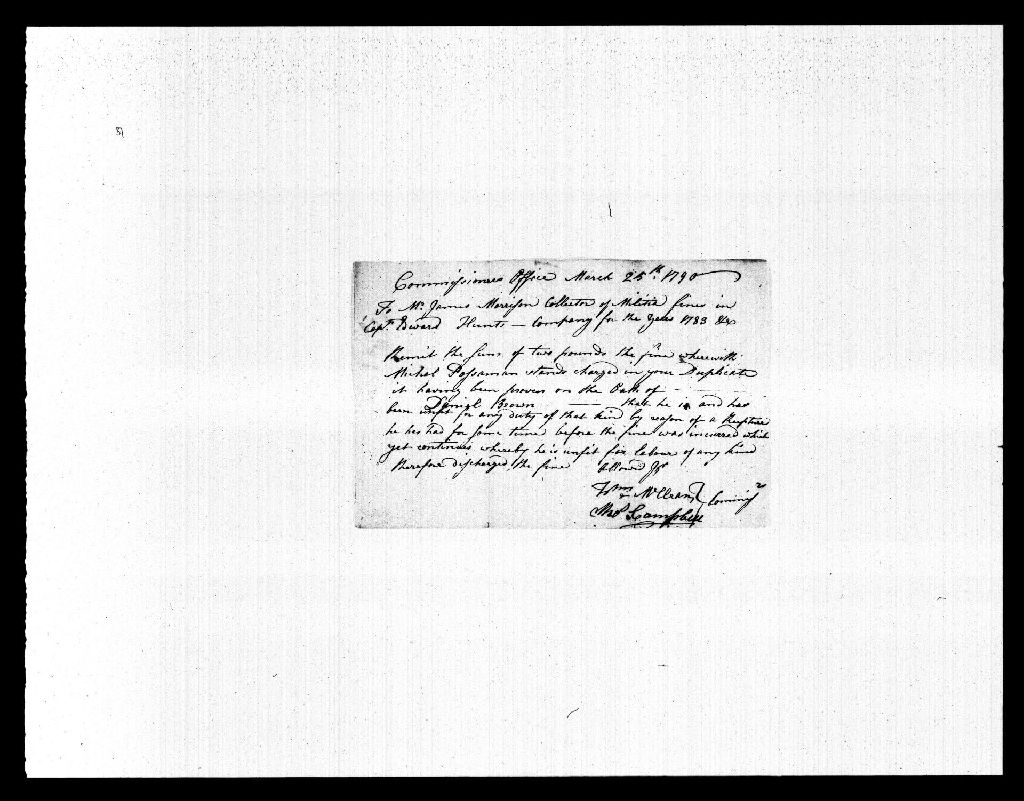 Commissioners Office March 25th 1790
To Mr. James Morrison Collector of Militia fines in
Capt Edward Hunts — Company for the Years 1783 &c
Remit the Sum of two pounds the fine wherewith
Michel Possaman stands charged in your Duplicate
it having been proven on the Oath of - -
Daniel Brown — that he is and has
been unfit for any duty of that kind by reason of a Rupture
he has had for some time before the fine was incurred which
yet continues whereby he is unfit for labour of any kind
therefore discharged the fine allowed
McClean
Campbell